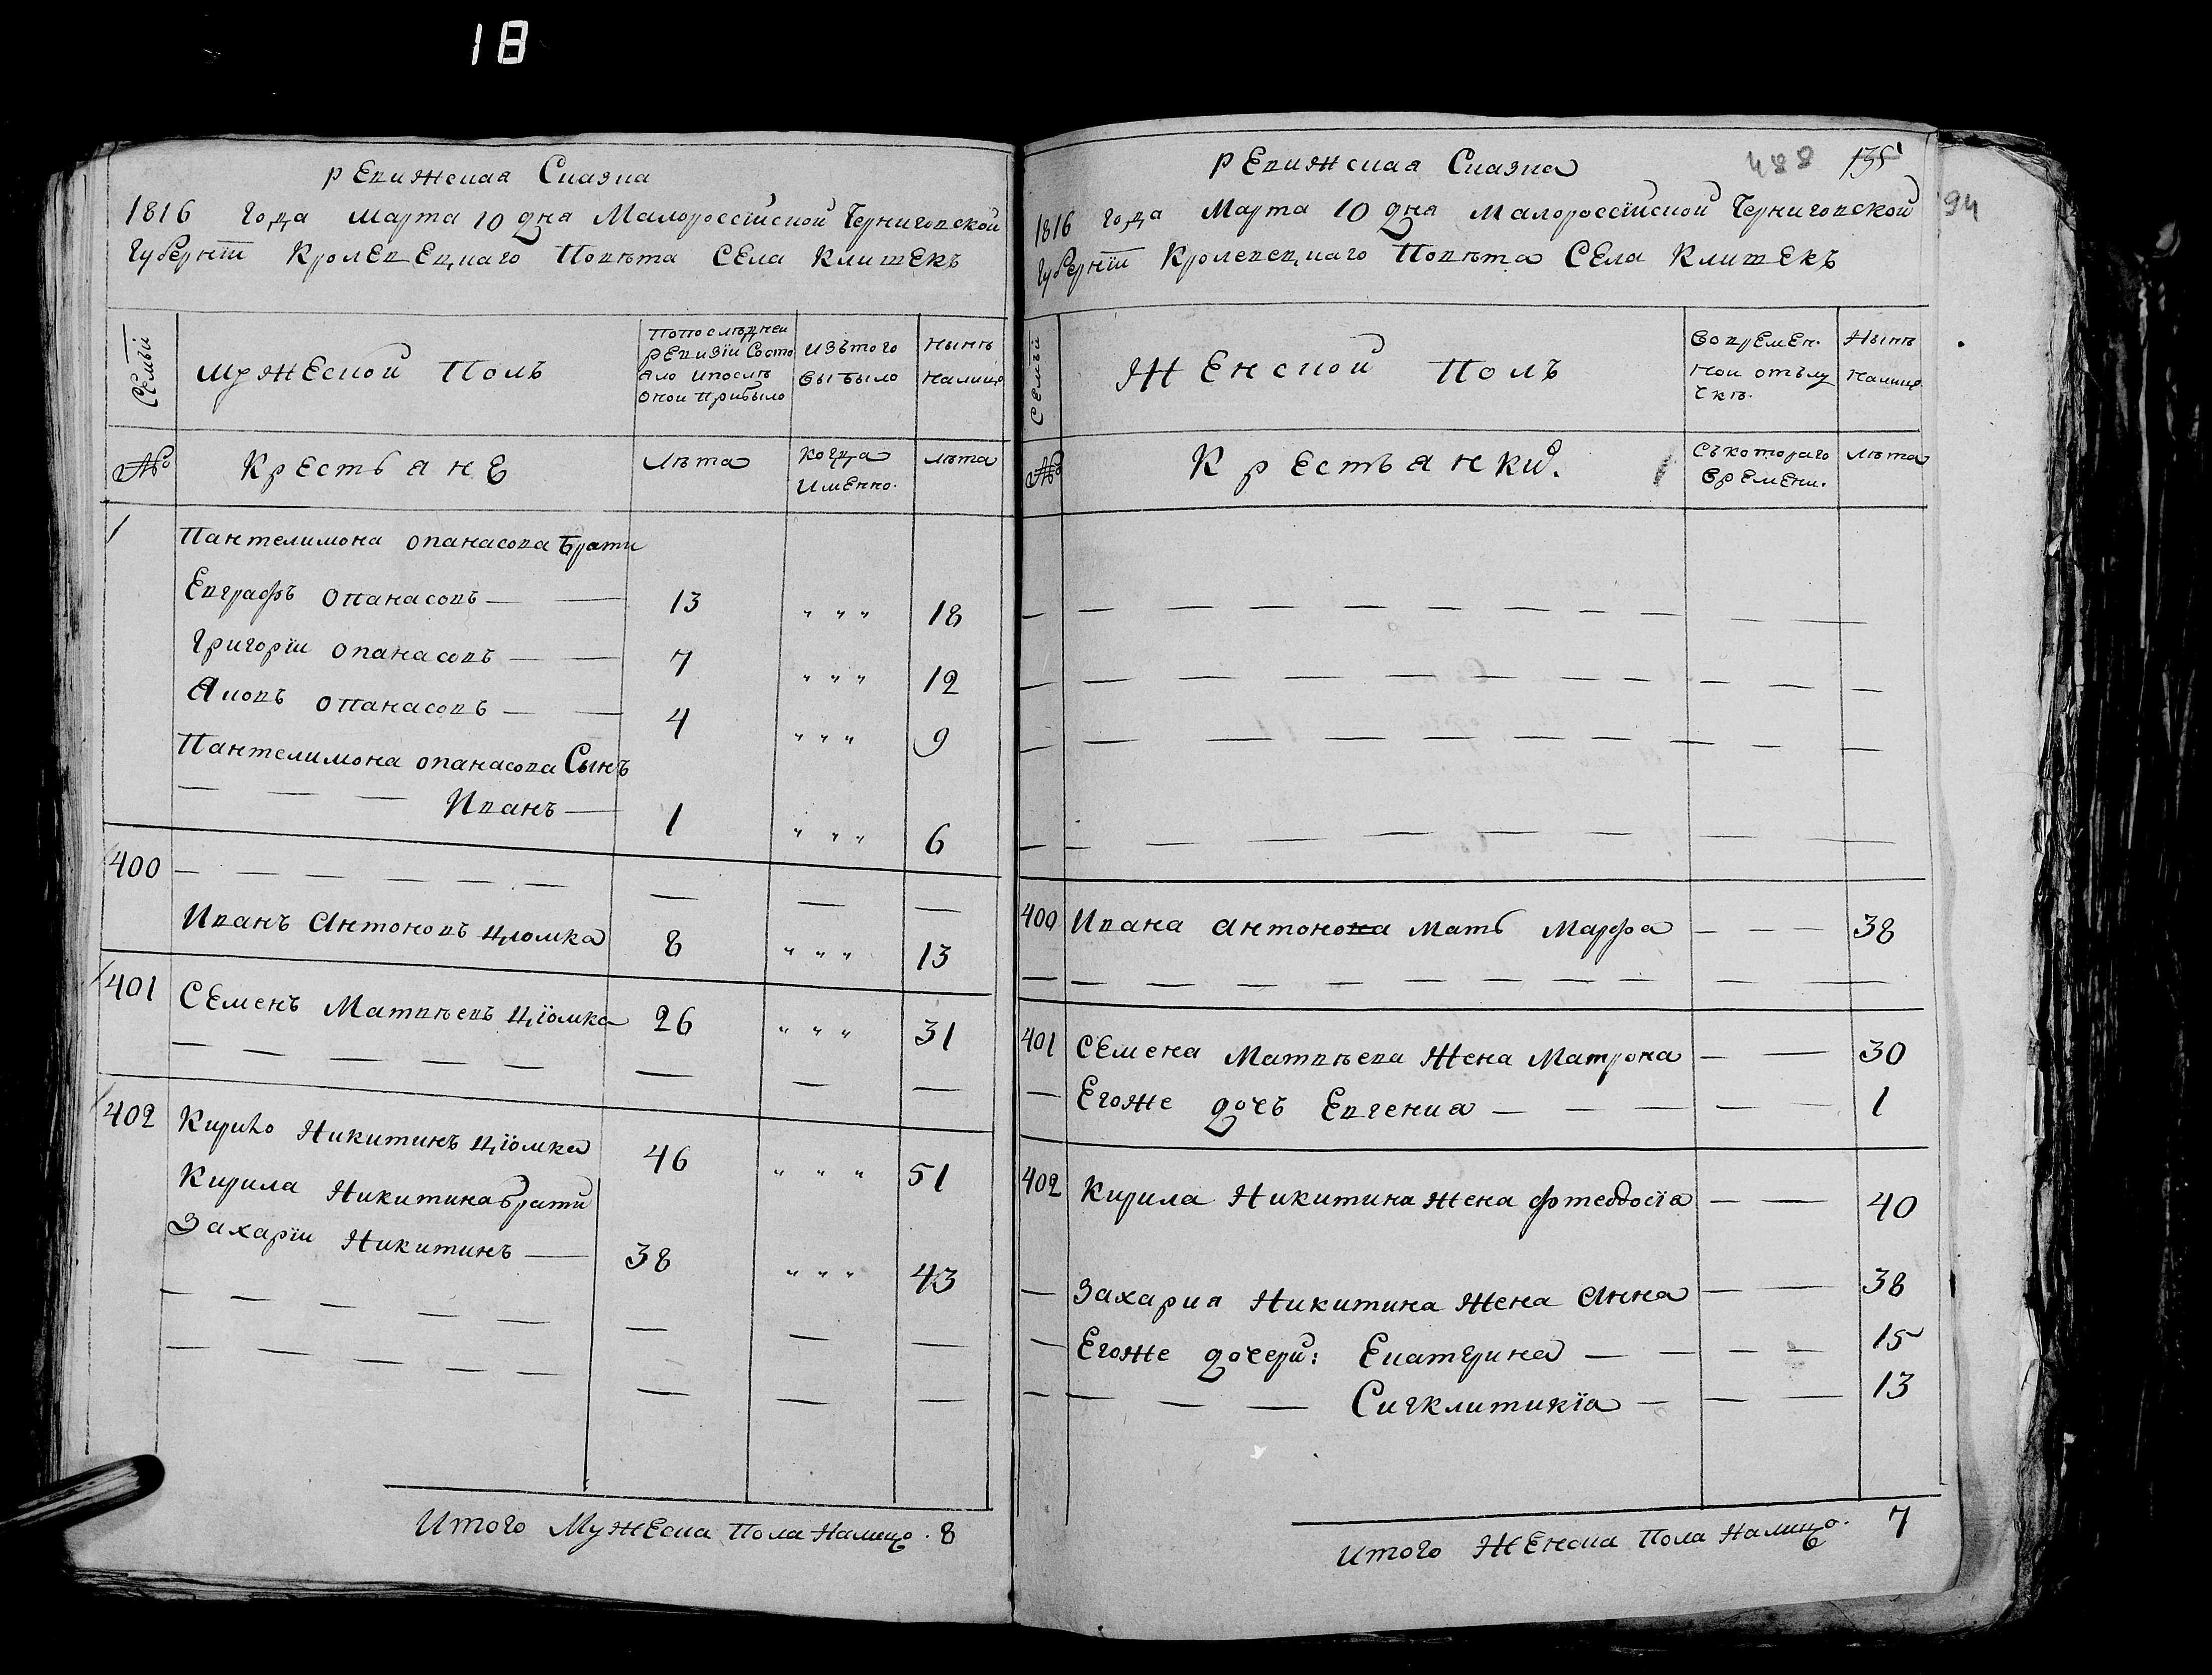 18
Ревижская Сказка
1816 года марта 10 дня Малороссїйской Черниговской
Губернїи Кролевецкаго Повѣта Села Клишекъ
Семьи
мужеской Полъ
По последней
ревизїи Состо
яло и послѣ
оной прибыло
Изътого
выбыло
Нынѣ
налицо
№
Крестьяне
Лѣта
Когда
Именно.
Лѣта
1
Пантелимона опанасова брати
Евграфъ опанасовъ — — 13 " " " 18
Григорїи опанасовъ — — 7 " " " 12
Яковъ опанасовъ — — 4 " " " 9
Пантелимона опанасова Сынъ
— — — Иванъ — 1 " " " 6
400 — — — — — — — — —
Иванъ Антоновъ цюмка 8 " " " 13
401 Семенъ Матвѣевъ цїомка 26 " " " 31
— — — — — — — —
402 Кирило Никитинъ цїомка 46 " " " 51
Кирила Никитина брати
Захарїи Никитинъ — 38 " " " 43
— — — — — — — —
— — — — — — — —
Итого Мужеска Пола Налицо. 8
Ревижская Сказка
488 135
94
1816 года Марта 10 дня Малороссїйской Черниговской
Губернїи Кролевецкаго Повѣта Села Клишекъ
Семьи
Женской Полъ
Во времен.
ной отълу
чкѣ.
Нынѣ
налицо.
№
Крестьянки.
Съ котораго
времени.
Лѣта
400 Ивана Антонона Мать Марфа — — — 38
401 Семена Матвѣева Жена Матрона — — 30
— Егоже дочъ Евгениа — — — — — 1
402 Кирила Никитина жена фтеодосїа — — 40
— Захариа Никитина Жена Анна — — 38
— Егоже дочери: Екатерина — — — — 15
— — — — Сигклитикїа — — — 13
Итого Женска Пола Налицо. 7